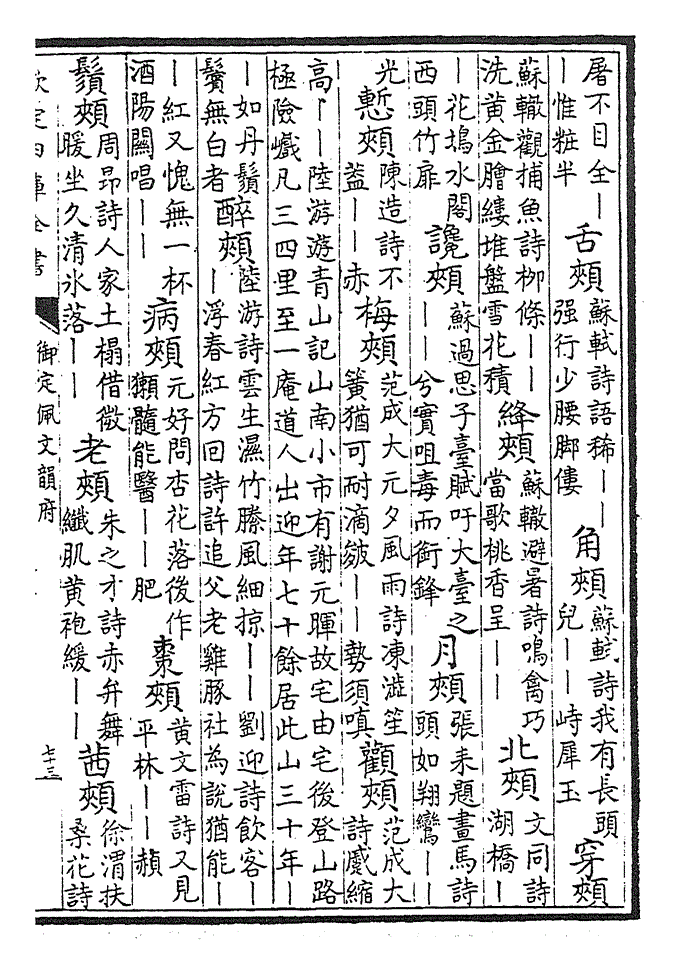 屠不目全丨
丨惟粧半
舌頰
蘇軾詩語稀丨丨
强行少腰脚僂
角頰
蘇軾詩我有長頭
兒丨丨峙犀玉
穿頰
蘇轍觀捕魚詩柳條丨丨
洗黄金膾縷堆盤雪花積
絳頰
蘇轍避暑詩鳴禽巧
當歌桃香呈丨丨
北頰
文同詩
湖橋丨
丨花塢水閣
西頭竹扉
讒頰
蘇過思子臺賦吁大臺之
丨丨兮實咀毒而銜鋒
月頰
張耒題畫馬詩
頭如翔鸞丨丨
光
慙頰
陳造詩不
蓋丨丨赤
梅頰
范成大元夕風雨詩凍澁笙
簧猶可耐滴皴丨丨勢須嗔
顴頰
范成大
詩蹙縮
高丨丨陸游遊青山記山南小市有謝元暉故宅由宅後登山路
極險巇凡三四里至一庵道人出迎年七十餘居此山三十年丨
丨如丹鬚
鬢無白者
醉頰
陸游詩雲生濕竹縢風細掠丨丨劉迎詩飲客丨
丨浮春紅方回詩許追父老雞豚社為說猶能丨
丨紅又愧無一杯
酒陽關唱丨丨
病頰
元好問杏花落後作
獺髓能醫丨丨肥
棗頰
黄文雷詩又見
平林丨丨赬
鬚頰
周昂詩人家土榻借微
暖坐久清氷落丨丨
老頰
朱之才詩赤弁舞
纖肌黄袍緩丨丨
茜頰
徐渭扶
桑花詩
欽定四庫全書
御定佩文韻府
七十三